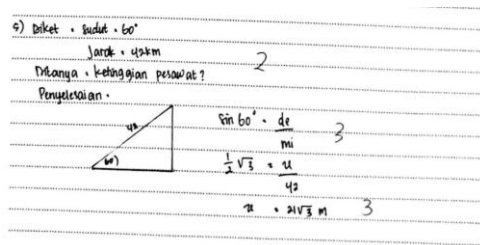 5) Diket : Sudut = 60°
Jarak = 42 km
2
Ditanya : ketinggian pesawat?
Penyelesaian :
42
60°)
Sin 60° = de
mi
3
1/2 √3 = x
42
x = 21√3 m
3